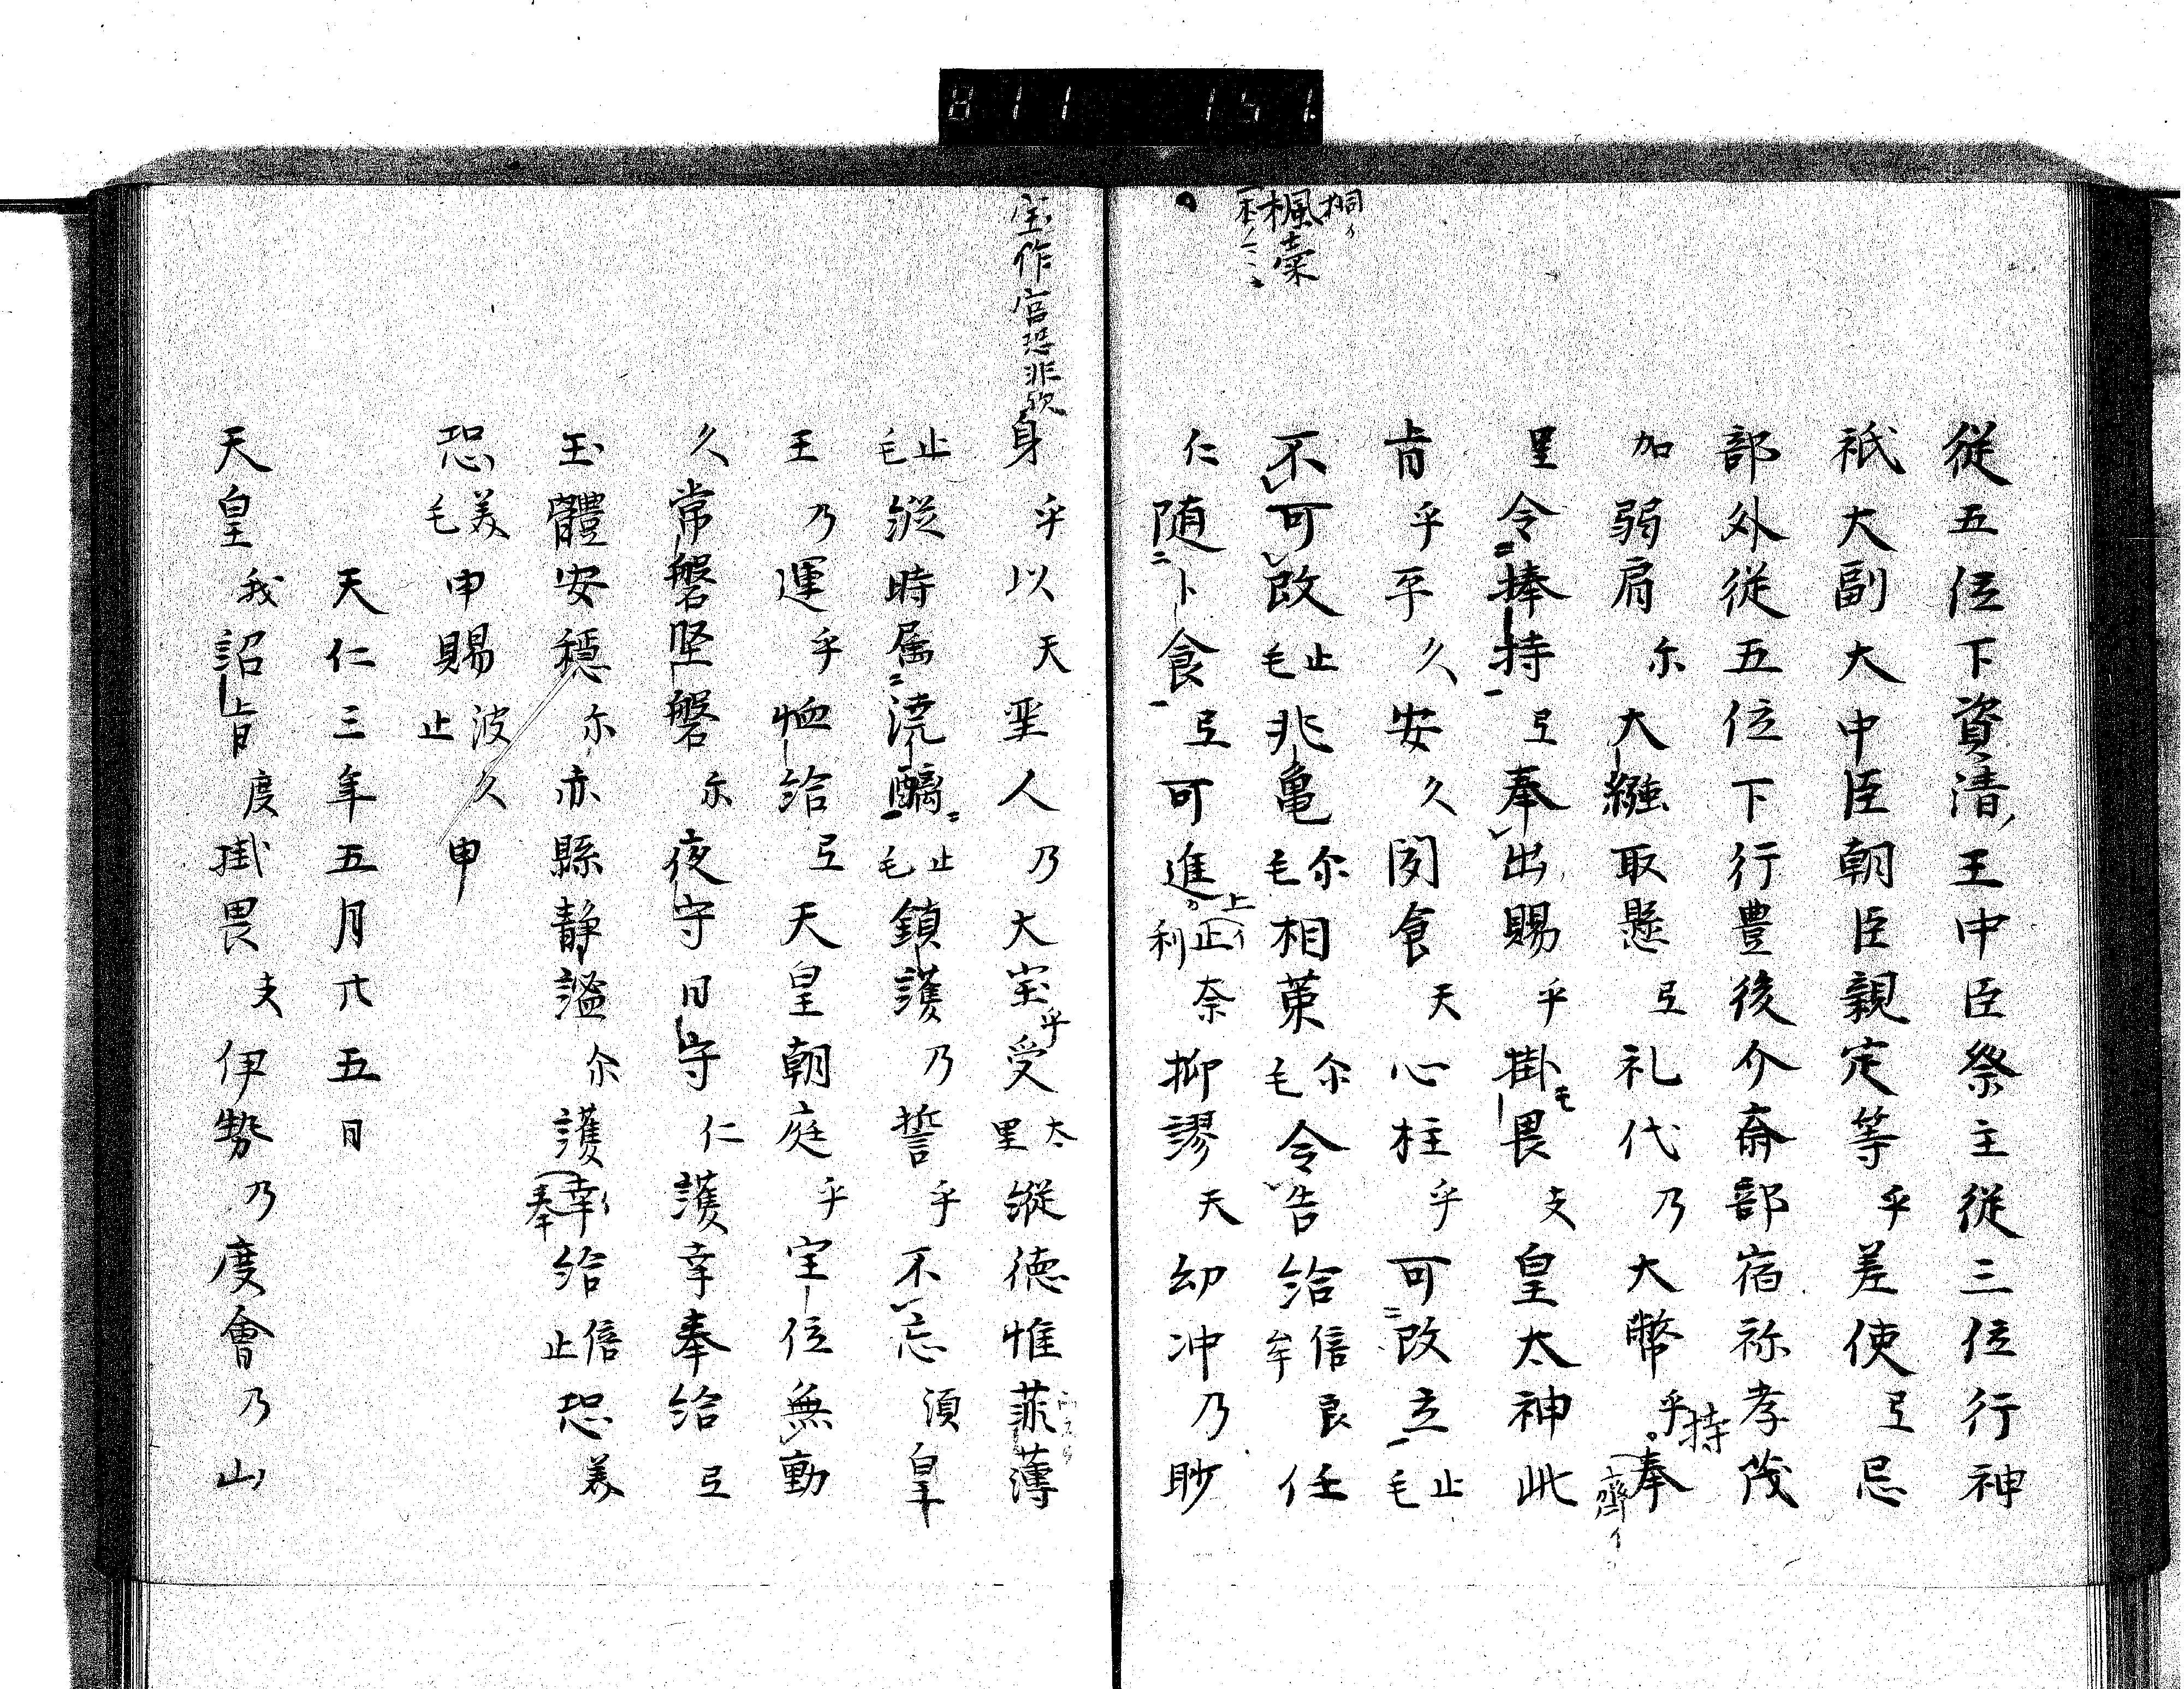 811 151
従五位下資清王中臣祭主従三位行神
祇大副大中臣朝臣親定等乎差使弖忌
部外従五位下行豊後介斎部宿祢孝茂
加弱肩尓大繦取懸弖礼代乃大幣乎奉
持
齊イ
里令捧持弖奉出賜乎掛毛畏支皇太神此
肯乎平久安久聞食天心柱乎可改立止毛
不可改止毛兆亀尓毛相䇲尓毛令告給信牟良任
仁随卜食弖可進正利奈抑謬天幼冲乃眇
上イ
桐イ
楓橐
身乎以天聖人乃大宝乎受太里縦徳惟菲薄
宝作官恐非欤
止毛縦時属澆醨止毛鎮護乃誓乎不忘須皇
王乃運乎恤給弖天皇朝庭乎宝位無動
久常磐堅磐尓夜守日守仁護幸奉給弖
玉體安穏尓亦縣静謐尓護幸給信止恐美
奉
恐美毛申賜波久止申
天仁三年五月廿五日
天皇我詔旨度掛畏支伊勢乃度會乃山